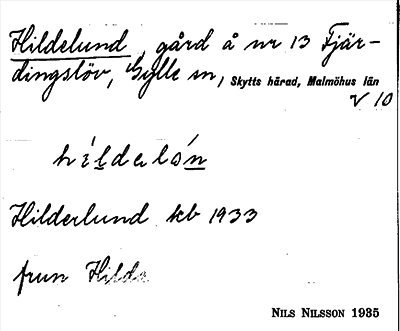 Hildelund, gård å nr 13 Fjär-
dingslöv, Gylle sn, Skytts härad, Malmöhus län
V 10
híldəlón
Hilderlund kb 1933
frun Hilda
NILS NILSSON 1935